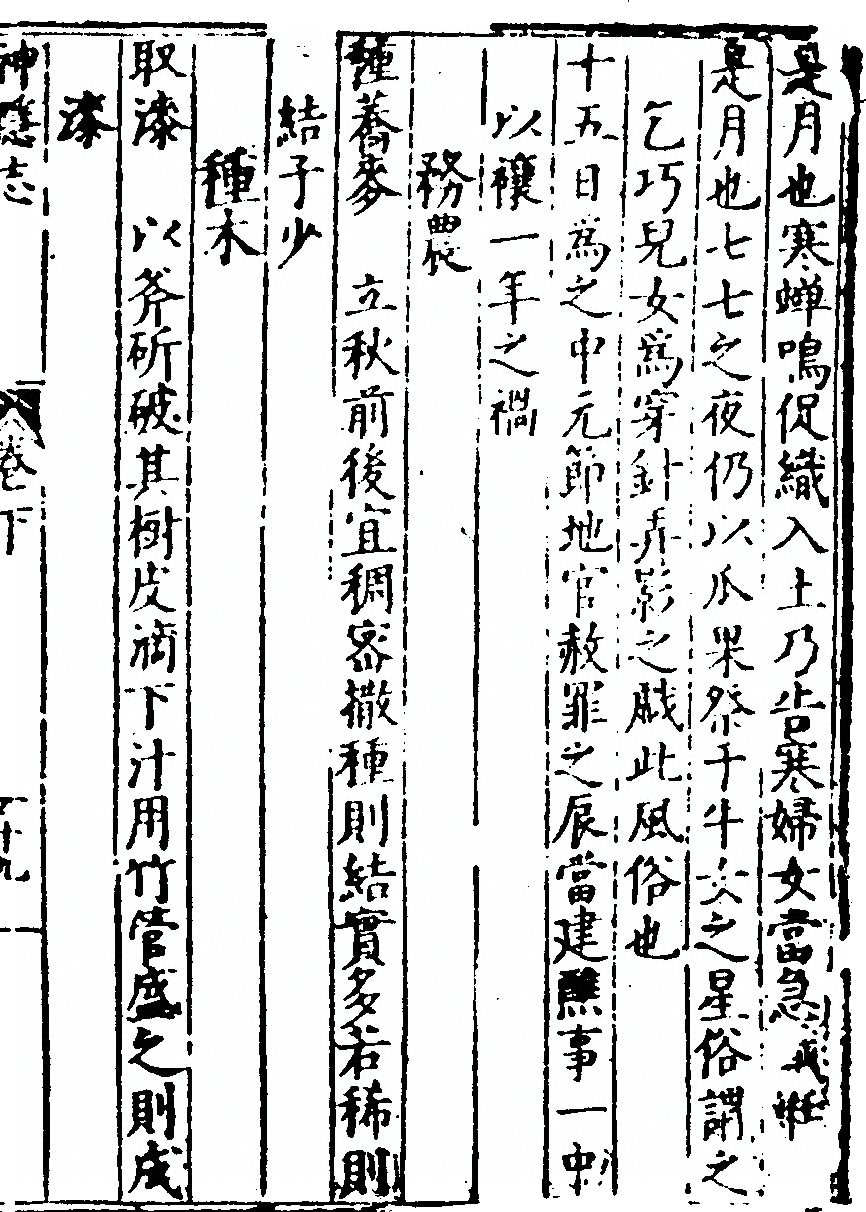 是月也寒蟬鳴促織入土乃告寒婦女當急
是月也七七之夜仍以瓜果祭于牛女之星俗謂之
乞巧兒女爲穿針弄影之戲此風俗也
十五日爲之中元節地官赦罪之辰當建醮事一中
以禳一年之禍
務農
種蕎麥 立秋前後宜稠密撒種則結實多若稀則
結子少
種木
取漆 以斧斫破其樹皮滴下汁用竹管盛之則成
漆
神隱志 卷下 十九